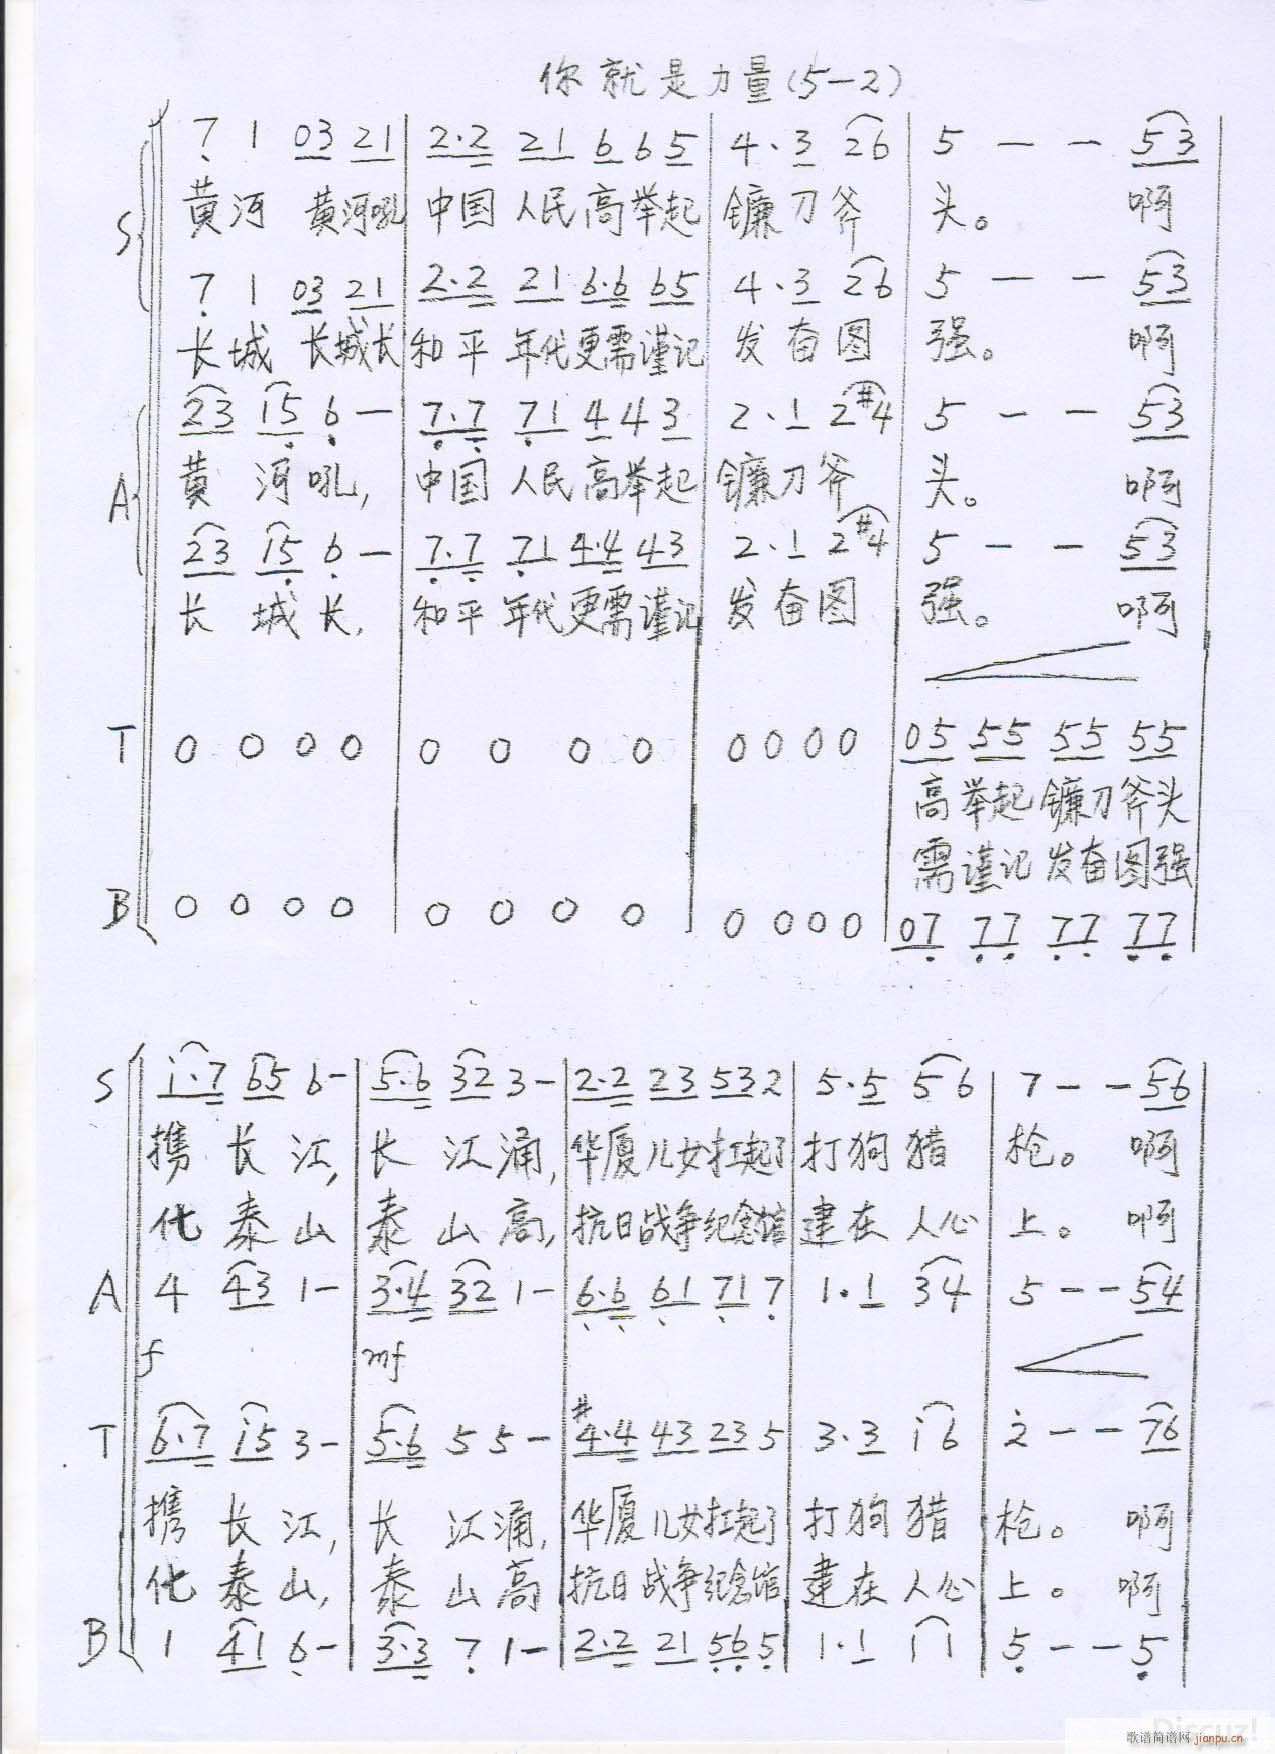 你就是力量(5-2)
7 1 03 21 | 2·2 21 6 6 5 | 4·3 26 | 5 — — 53
黄河 黄河吼 中国 人民 高举起 镰刀斧 头。 啊
S
7 1 03 21 | 2·2 21 6·6 65 | 4·3 26 | 5 — — 53
长城 长城长 和平 年代更需谨记 发奋图 强。 啊
23 15 6 — | 7·7 71 4 4 3 | 2·1 2#4 | 5 — — 53
黄 河吼, 中国 人民 高举起 镰刀斧 头。 啊
A
23 15 6 — | 7·7 71 4·4 43 | 2·1 2#4 | 5 — — 53
长 城长, 和平 年代更需谨记 发奋图 强。 啊
T 0 0 0 0 | 0 0 0 0 | 0 0 0 0 | 05 55 55 55
高举起 镰刀斧头
需谨记 发奋图强
B 0 0 0 0 | 0 0 0 0 | 0 0 0 0 | 07 77 77 77
S i·7 65 6— | 5·6 32 3— | 2·2 23 53 2 | 5·5 56 | 7 — — 56
携 长 江, 长 江涌, 华厦儿女扛起了 打狗猎 枪。 啊
化 泰山 泰 山高, 抗日战争纪念馆 建在人心 上。 啊
A 4 43 1— | 3·4 32 1— | 6·6 61 71 7 | 1·1 34 | 5 — — 54
f mf
T 6·7 i5 3— | 5·6 5 5— | #4·4 43 23 5 | 3·3 i6 | 2 — — 76
携 长 江, 长 江涌, 华厦儿女扛起了 打狗猎 枪。 啊
化 泰山, 泰 山高 抗日战争纪念馆 建在人心 上。 啊
B 1 41 6— | 3·3 7 1— | 2·2 21 56 5 | 1·1 11 | 5 — — 5
Discuz!
歌谱简谱网 jianpu.cn